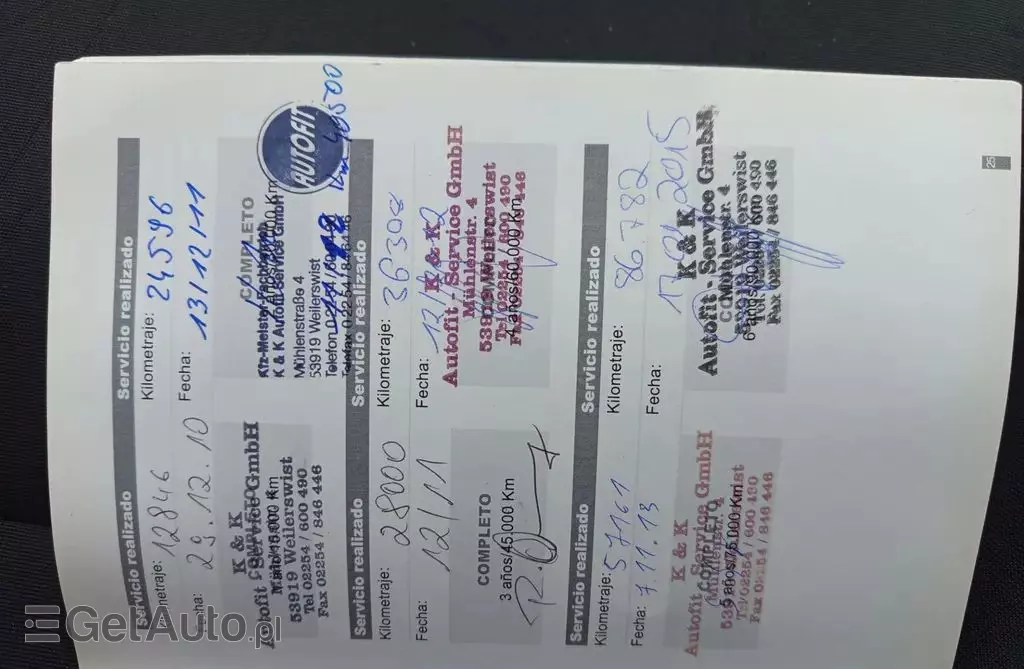 Servicio realizado
Kilometraje: 12846
Fecha: 29.12.10
K & K
Autofit - Service GmbH
COMPLETO
1 año/15.000 Km
53919 Weilerswist
Tel 02254 / 600 490
Fax 02254 / 846 446
Servicio realizado
Kilometraje: 24596
Fecha: 13/12/11
COMPLETO
AUTOFIT
Kfz-Meister-Fachbetrieb
K & K Autofit-Service GmbH
Mühlenstraße 4
53919 Weilerswist
Telefon
Telefax 0 22 54 / 8 464 46
Servicio realizado
Kilometraje: 28000
Fecha: 12/11
COMPLETO
3 años/45.000 Km
Servicio realizado
Kilometraje: 36308
Fecha:
K & K
Autofit - Service GmbH
Mühlenstr. 4
53919 Weilerswist
Tel 02254 / 600 490
4 años/60.000 Km
Fax 02254 / 846 446
Servicio realizado
Kilometraje: 57161
Fecha: 7.11.13
K & K
Autofit - Service GmbH
COMPLETO
5 años/75.000 Km
Tel 02254 / 600 490
Fax 02254 / 846 446
Servicio realizado
Kilometraje: 86.782
Fecha:
2015
K & K
Autofit - Service GmbH
COMPLETO
Mühlenstr. 4
53919 Weilerswist
6 años/90.000 Km
Tel 02254 / 600 490
Fax 02254 / 846 446
25
GetAuto.pl